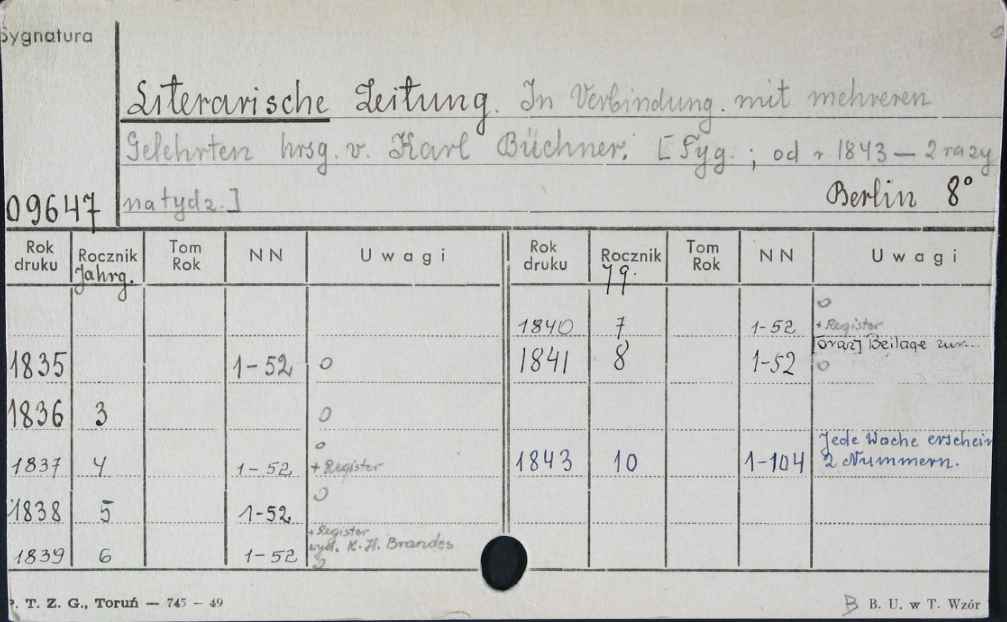 Sygnatura
Literarische Zeitung. In Verbindung. mit mehreren
Gelehrten hrsg. v. Karl Büchner. [Tyg.; od r 1843 — 2 razy
na tydz.] Berlin 8°
09647
Rok druku Rocznik Jahrg. Tom Rok NN Uwagi Rok druku Rocznik Jg. Tom Rok NN Uwagi
1840 7 1-52 + Register
oraz] Beilage zur...
1835 1-52 o 1841 8 1-52 o
1836 3 o
1837 4 1-52 + Register 1843 10 1-104 Jede Woche erschein
2 Nummern.
1838 5 1-52
1839 6 1-52 + Register
wyd. K. H. Brandes
P. T. Z. G., Toruń — 745 - 49 B B. U. w T. Wzór